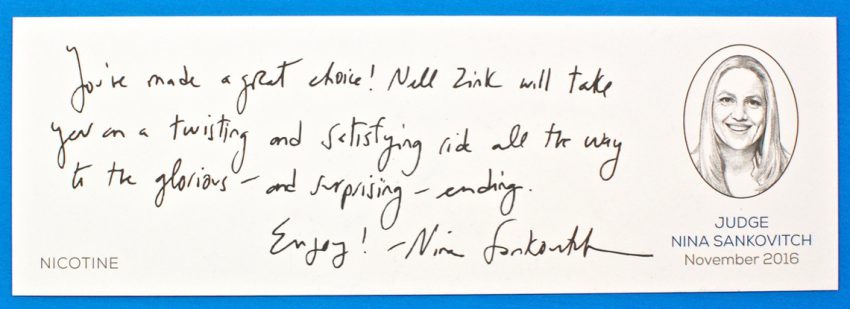 You've made a great choice! Nell Zink will take
you on a twisting and satisfying ride all the way
to the glorious – and surprising – ending.
Enjoy! – Nina Sankovitch
NICOTINE
JUDGE
NINA SANKOVITCH
November 2016